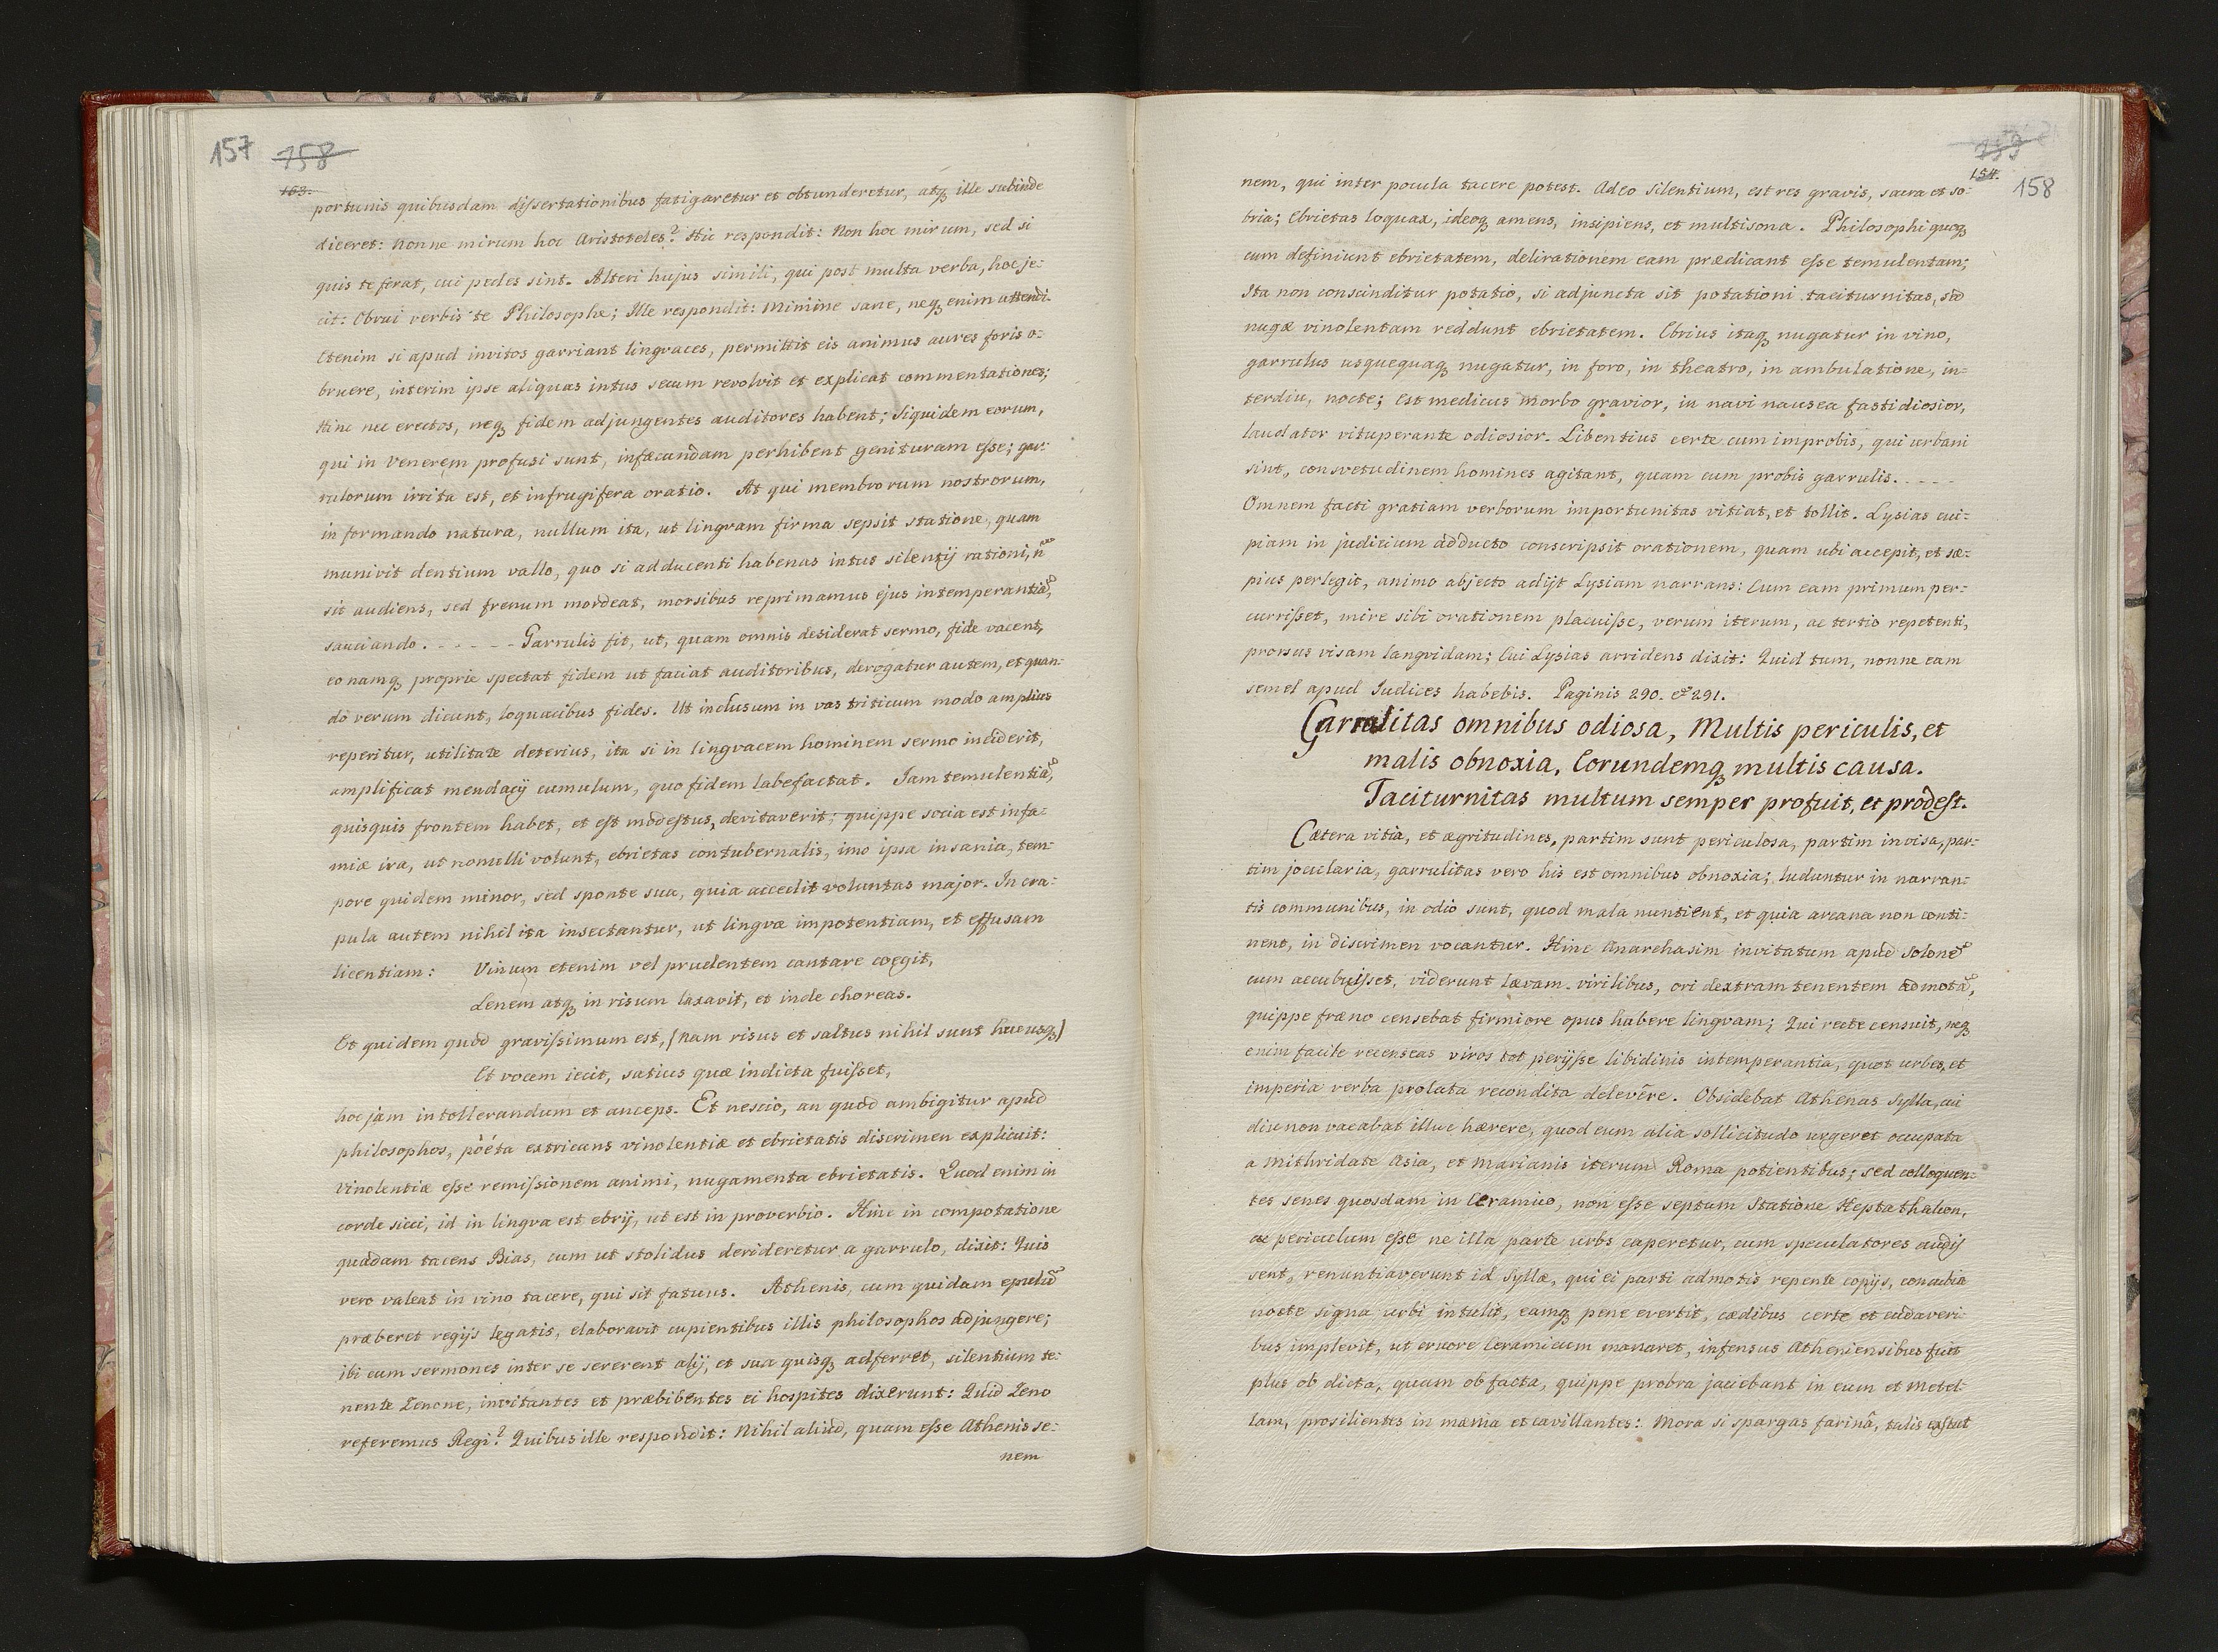 157 158
163.
portunis quibusdam dissertationibus fatigaretur et obtunderetur, atq₃ ille subinde
diceret: Nonne mirum hoc Aristoteles? Hic respondit: Non hoc mirum, sed si
quis te ferat, cui pedes sint. Alteri hujus simili, qui post multa verba, hoc je:
cit: Obrui verbis te Philosophe; Ille respondit: Minime sane, neq₃ enim attendi.
Etenim si apud invitos garriant lingvaces, permittit eis animus aures foris o:
bruere, interim ipse aliquas intus secum revolvit et explicat commentationes;
Hinc nec erectos, neq₃ fidem adjungentes auditores habent; siquidem eorum,
qui in Venerem profusi sunt, infæcundam perhibent genituram esse; gar:
rulorum irrita est, et infrugifera oratio. At qui membrorum nostrorum,
in formando natura, nullum ita, ut lingvam firma sepsit statione, quam
munivit dentium vallo, quo si adducenti habenas intus silentij rationi, n̄
sit audiens, sed frenum mordeat, morsibus reprimamus ejus intemperantiã,
sauciando. - - - - - Garrulis fit, ut, quam omnis desiderat sermo, fide vacent,
eo namq₃ proprie spectat fidem ut faciat auditoribus, derogatur autem, et quan:
do verum dicunt, loquacibus fides. Ut inclusum in vas triticum modo amplius
reperitur, utilitate deterius, ita si in lingvacem hominem sermo inciderit,
amplificat mendacij cumulum, quo fidem labefactat. Jam temulentiã,
quisquis frontem habet, et est modestus, devitaverit; quippe socia est infa:
miæ ira, ut nonnulli volunt, ebrietas contubernalis, imo ipsa insania, tem:
pore quidem minor, sed sponte sua, quia accedit voluntas major. In cra:
pula autem nihil ita insectantur, ut lingvæ impotentiam, et effusam
licentiam: Vinum etenim vel prudentem cantare coegit,
Lenem atq₃ in risum laxavit, et inde choreas.
Et quidem quod gravissimum est, (nam risus et saltus nihil sunt hucusq₃)
Et vocem iecit, satius quæ indicta fuisset,
hoc jam intollerandum et anceps. Et nescio, an quod ambigitur apud
philosophos, poëta extricans vinolentiæ et ebrietatis discrimen explicuit:
Vinolentiæ esse remissionem animi, nugamenta ebrietatis. Quod enim in
corde sicci, id in lingva est ebrij, ut est in proverbio. Hinc in compotatione
quadam tacens Bias, cum ut stolidus derideretur a garrulo, dixit: Quis
vero valeat in vino tacere, qui sit fatuus. Athenis, cum quidam epulũ
præberet regijs legatis, elaboravit cupientibus illis philosophos adjungere;
ibi cum sermones inter se sererent alij, et sua quisq₃ adferret, silentium te:
nente Zenone, invitantes et præbibentes ei hospites dixerunt: Quid Zeno
referemus Regi? Quibus ille respondit: Nihil aliud, quam esse Athenis se:
nem
159
154.
158
nem, qui inter pocula tacere potest. Adeo silentium, est res gravis, sacra et so:
bria; Ebrietas loquax, ideoq₃ amens, insipiens, et multisona. Philosophi quoq₃
cum definiunt ebrietatem, delirationem eam prædicant esse temulentam;
Ita non conscinditur potatio, si adjuncta sit potationi taciturnitas, sed
nugæ vinolentam reddunt ebrietatem. Ebrius itaq₃ nugatur in vino,
garrulus usquequaq₃ nugatur, in foro, in theatro, in ambulatione, in:
terdiu, nocte; est medicus morbo gravior, in navi nausea fastidiosior,
laudator vituperante odiosior. Libentius certe cum improbis, qui urbani
sint, consvetudinem homines agitant, quam cum probis garrulis. - - - -
Omnem facti gratiam verborum importunitas vitiat, et tollit. Lysias cui:
piam in judicium adducto conscripsit orationem, quam ubi accepit, et sæ:
pius perlegit, animo abjecto adijt Lysiam narrans: Cum eam primum per:
currisset, mire sibi orationem placuisse, verum iterum, ac tertio repetenti,
prorsus visam langvidam; Cui Lysias arridens dixit: Quid tum, nonne eam
semel apud Iudices habebis. Paginis 290. & 291.
Garrulitas omnibus odiosa, Multis periculis, et
malis obnoxia, Eorundemq₃ multis causa.
Taciturnitas multum semper profuit, et prodest.
Cætera vitia, et ægritudines, partim sunt periculosa, partim invisa, par:
tim jocularia, garrulitas vero his est omnibus obnoxia; luduntur in narran:
tis communibus, in odio sunt, quod mala nuntient, et quia arcana non conti:
nent, in discrimen vocantur. Hinc Anarchasim invitatum apud Solonẽ
cum accubuisset, viderunt lævam virilibus, ori dextram tenentem admotã,
quippe fræno censebat firmiore opus habere lingvam; Qui recte censuit, neq₃
enim facile recenseas viros tot perijsse libidinis intemperantia, quot urbes, et
imperia verba prolata recondita delevêre. Obsidebat Athenas Sylla, cui
diu non vacabat illuc hærere, quod eum alia sollicitudo urgeret occupata
a Mithridate Asia, et Marianis iterum Roma potientibus; sed colloquen:
tes senes quosdam in Ceramico, non esse septum statione Heptathalcon,
ac periculum esse ne illa parte urbs caperetur, cum speculatores audij
sent, renuntiaverunt id Syllæ, qui ei parti admotis repente copijs, concubia
nocte signa urbi intulit, eamq₃ pene evertit, cædibus certe et cadaveri
bus implevit, ut cruore Ceramicum manaret, infensus Atheniensibus fuit
plus ob dicta, quam ob facta, quippe probra jaciebant in eum et Metel
lam, prosilientes in mænia et cavillantes: Mora si spargas farinâ, talis extat